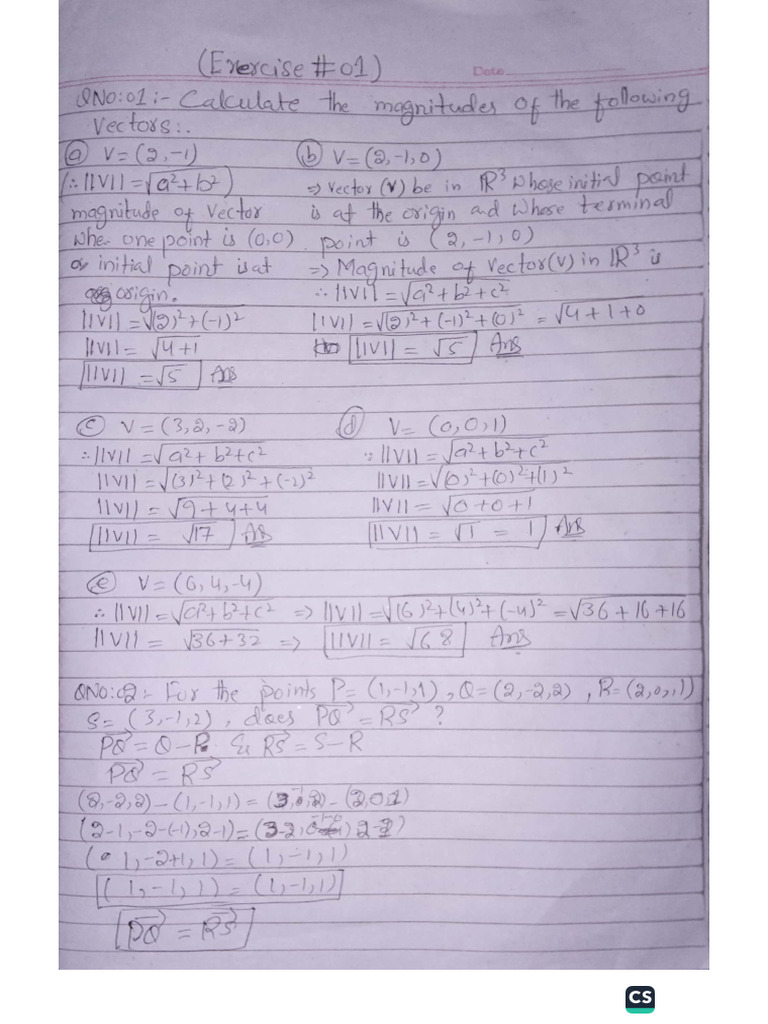 (Exercise #01)
Date
QNO:01:- Calculate the magnitudes of the following
Vectors:.
(a) V=(2,-1)
(∴ ||V|| = √a²+b²)
magnitude of Vector
Whe one point is (0,0)
or initial point is at
origin.
||V|| = √(2)²+(-1)²
||V|| = √4+1
||V|| = √5 Ans
(b) V=(2,-1,0)
⇒ Vector (V) be in ℝ³ Whose initial point
is at the origin and Whose terminal
point is (2,-1,0)
⇒ Magnitude of Vector(V) in ℝ³ is
∴ ||V|| = √a²+b²+c²
||V|| = √(2)²+(-1)²+(0)² = √4+1+0
||V|| = √5 Ans
(c) V=(3,2,-2)
∴ ||V|| = √a²+b²+c²
||V|| = √(3)²+(2)²+(-2)²
||V|| = √9+4+4
||V|| = √17 Ans
(d) V=(0,0,1)
∵ ||V|| = √a²+b²+c²
||V|| = √(0)²+(0)²+(1)²
||V|| = √0+0+1
||V|| = √1 = 1 Ans
(e) V=(6,4,-4)
∴ ||V|| = √a²+b²+c² ⇒ ||V|| = √(6)²+(4)²+(-4)² = √36+16+16
||V|| = √36+32 ⇒ ||V|| = √68 Ans
QNO:02:- For the points P=(1,-1,1), Q=(2,-2,2), R=(2,0,1)
S=(3,-1,2), does PQ⃗ = RS⃗ ?
PQ⃗ = Q-P & RS⃗ = S-R
PQ⃗ = RS⃗
(2,-2,2)-(1,-1,1)=(3,-1,2)-(2,0,1)
(2-1,-2-(-1),2-1)=(3-2,-1-0,2-1)
(1,-2+1,1)=(1,-1,1)
(1,-1,1)=(1,-1,1)
PQ⃗ = RS⃗
CS